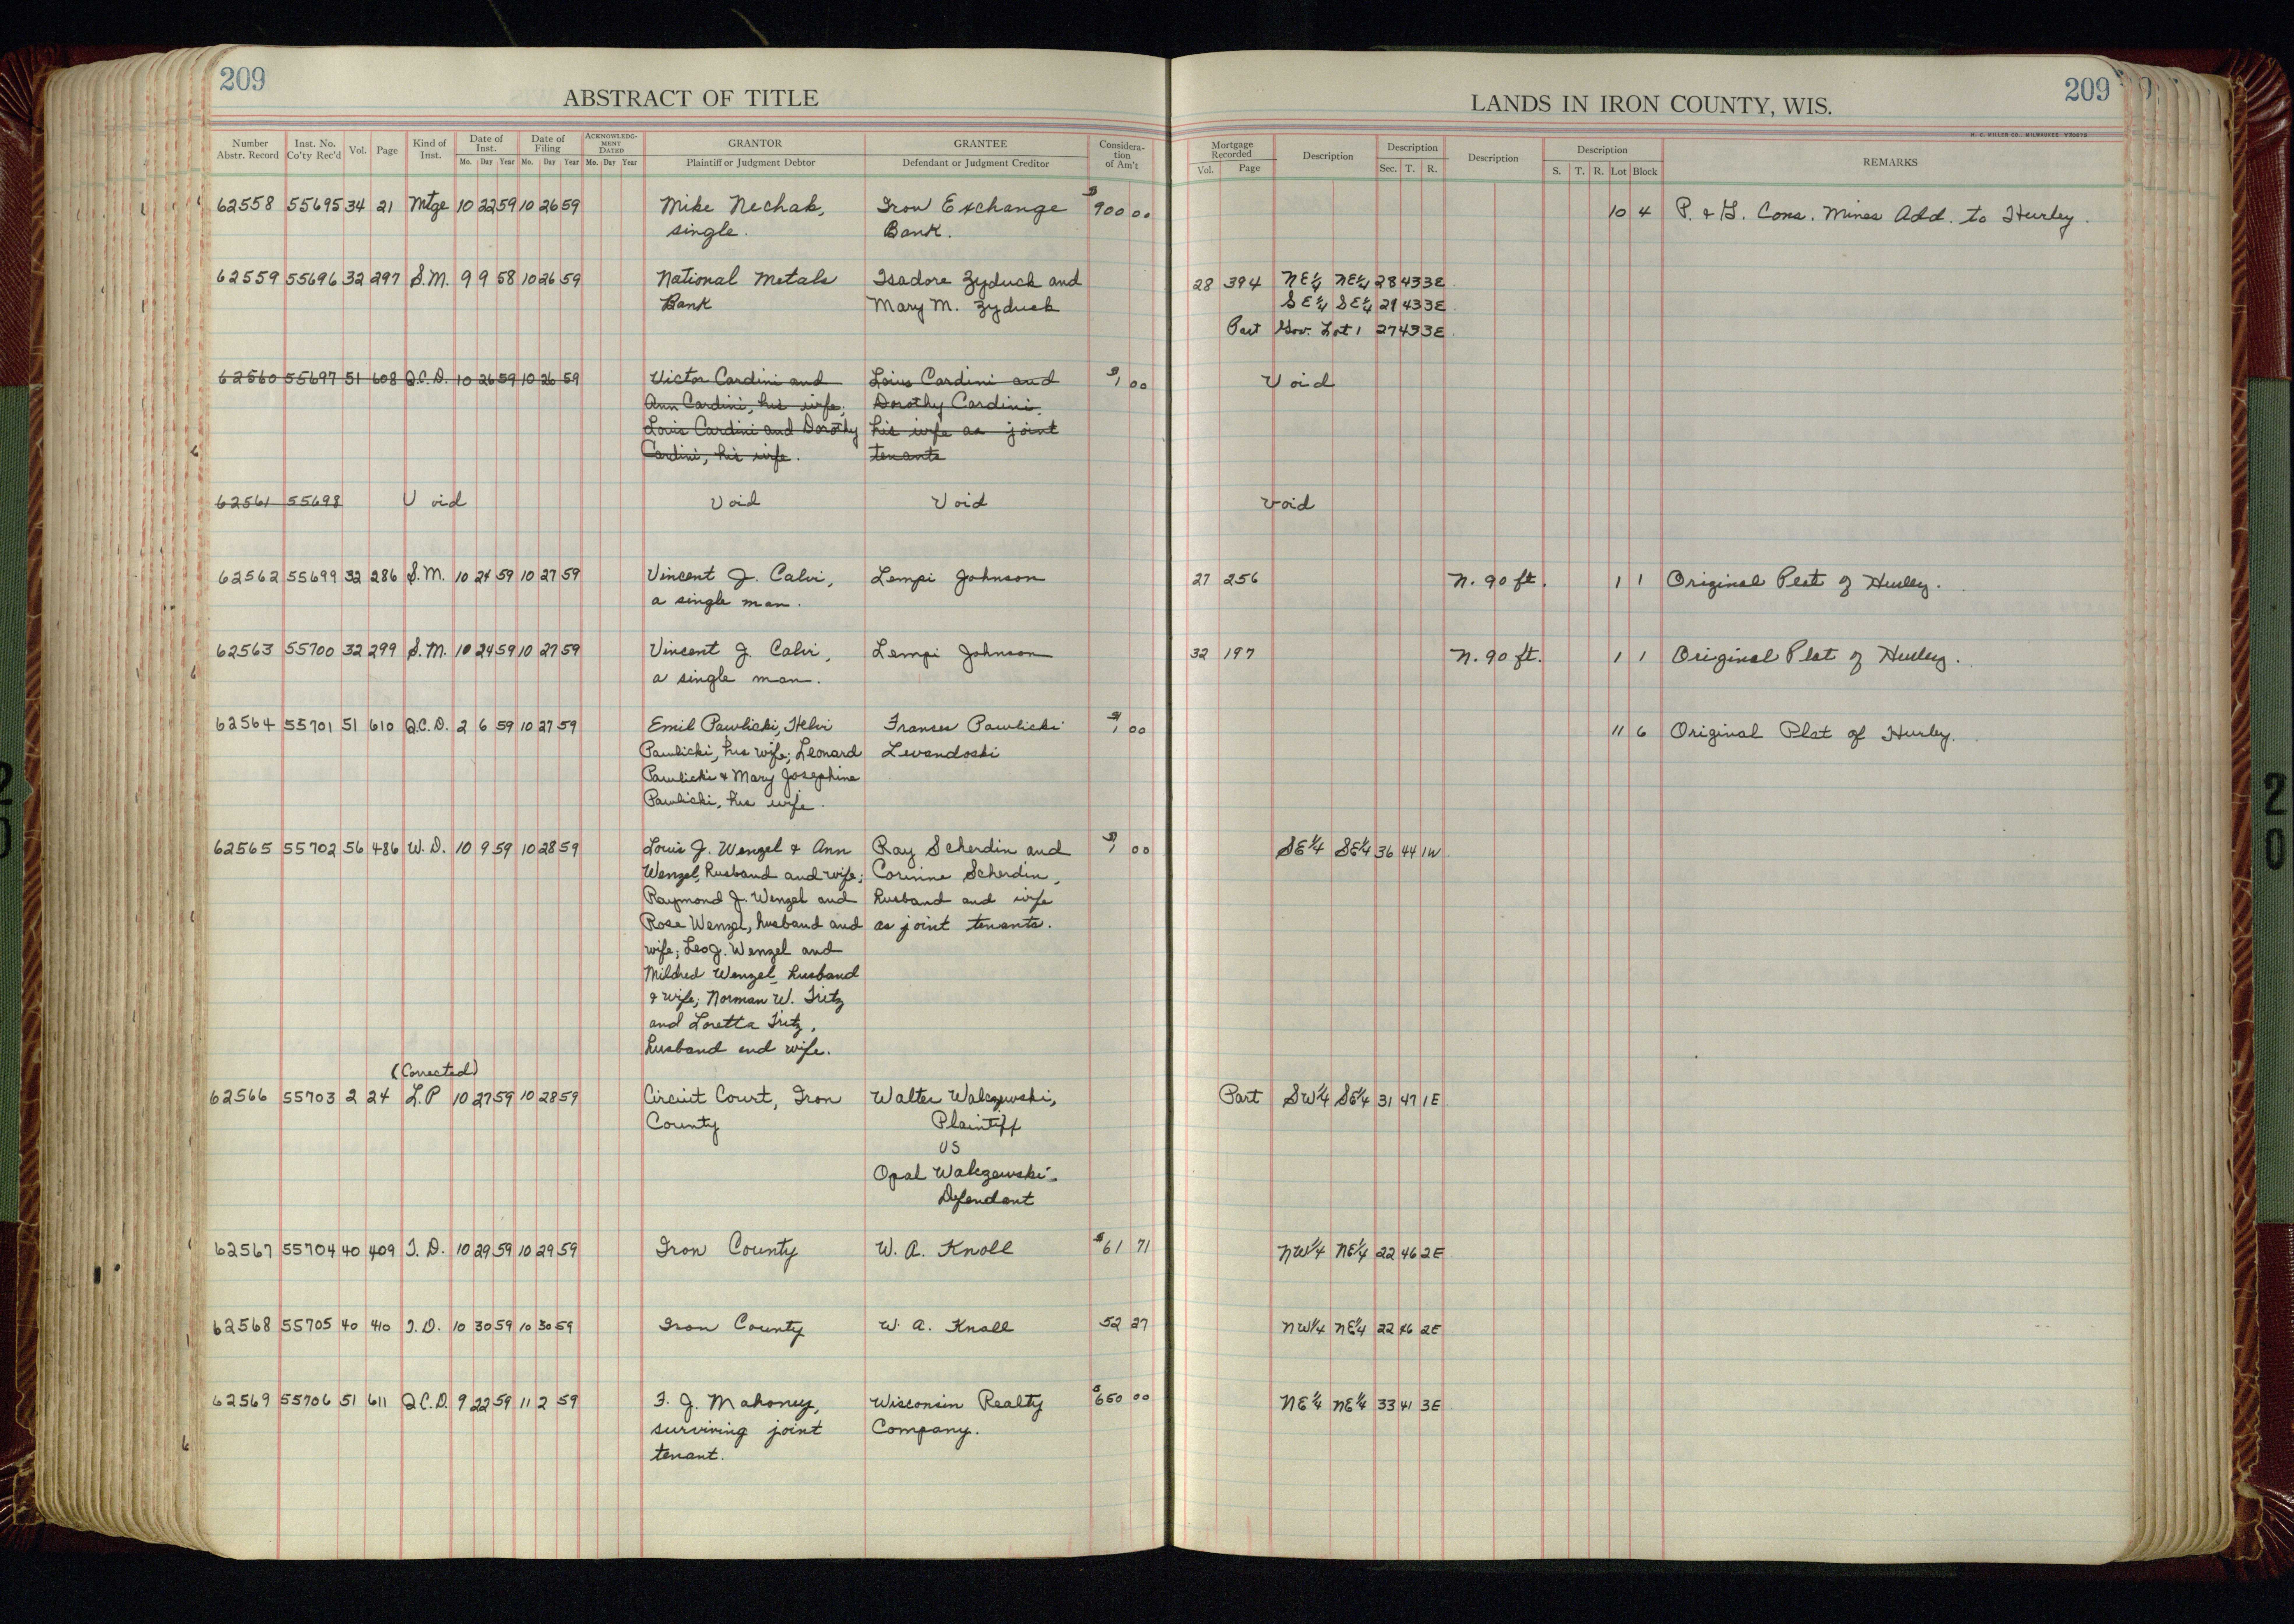 209
ABSTRACT OF TITLE
LANDS IN IRON COUNTY, WIS.
209
H. C. MILLER CO., MILWAUKEE
Number Abstr. Record Inst. No. Co'ty Rec'd Vol. Page Kind of Inst. Date of Inst. Mo. Day Year Date of Filing Mo. Day Year ACKNOWLEDGMENT DATED Mo. Day Year GRANTOR Plaintiff or Judgment Debtor GRANTEE Defendant or Judgment Creditor Consideration of Am't Mortgage Recorded Vol. Page Description Description Sec. T. R. Description Description S. T. R. Lot Block REMARKS
62558 55695 34 21 Mtge 10 22 59 10 26 59 Mike Nechak, Iron Exchange $900 00 10 4 P. & G. Cons. Mines Add. to Hurley.
single. Bank.
62559 55696 32 297 S.M. 9 9 58 10 26 59 National Metals Isadore Zyduck and 28 394 NE¼ NE¼ 28 43 3E
Bank Mary M. Zyduck SE¼ SE¼ 21 43 3E
Part Gov. Lot 1 27 43 3E
62560 55697 51 608 Q.C.D. 10 26 59 10 26 59 Victor Cardini and Loius Cardini and $1 00 Void
Ann Cardini, his wife; Dorothy Cardini,
Louis Cardini and Dorothy his wife as joint
Cardini, his wife. tenants
62561 55698 Void Void Void Void
62562 55699 32 286 S.M. 10 24 59 10 27 59 Vincent J. Calvi, Lempi Johnson 27 256 N. 90 ft. 1 1 Original Plat of Hurley.
a single man.
62563 55700 32 299 S.M. 10 24 59 10 27 59 Vincent J. Calvi, Lempi Johnson 32 197 N. 90 ft. 1 1 Original Plat of Hurley.
a single man.
62564 55701 51 610 Q.C.D. 2 6 59 10 27 59 Emil Pawlicki, Helvi Franses Pawlicki $1 00 11 6 Original Plat of Hurley.
Pawlicki, his wife; Leonard Levandoski
Pawlicki & Mary Josephine
Pawlicki, his wife.
62565 55702 56 486 W.D. 10 9 59 10 28 59 Louis J. Wenzel & Ann Ray Scherdin and $1 00 SE¼ SE¼ 36 44 1W
Wenzel, husband and wife; Corinne Scherdin,
Raymond J. Wenzel and husband and wife
Rose Wenzel, husband and as joint tenants.
wife; Leo J. Wenzel and
Mildred Wenzel, husband
& wife; Norman W. Fritz
and Loretta Fritz,
husband and wife.
(Corrected)
62566 55703 2 24 L.P 10 27 59 10 28 59 Circuit Court, Iron Walter Walczewski, Part SW¼ SE¼ 31 47 1E
County Plaintiff
VS
Opal Walczewski-
Defendant
62567 55704 40 409 T.D. 10 29 59 10 29 59 Iron County W. A. Knoll $61 71 NW¼ NE¼ 22 46 2E
62568 55705 40 410 T.D. 10 30 59 10 30 59 Iron County W. A. Knoll 52 27 NW¼ NE¼ 22 46 2E
62569 55706 51 611 Q.C.D. 9 22 59 11 2 59 F. J. Mahoney, Wisconsin Realty $650 00 NE¼ NE¼ 33 41 3E
surviving joint Company.
tenant.